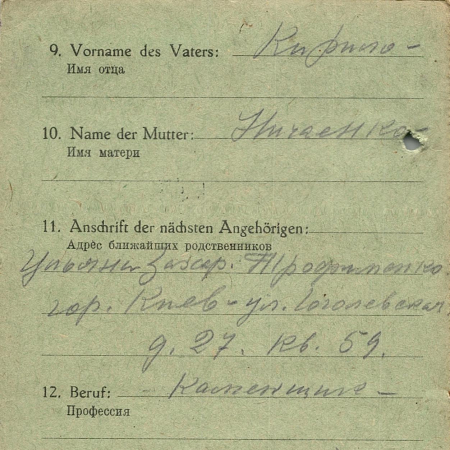 9. Vorname des Vaters: Кирило –
Имя отца
10. Name der Mutter: Ничаенко –
Имя матери
11. Anschrift der nächsten Angehörigen:
Адрес ближайших родственников
Ульяни Захар. Трофименко.
гор. Киев – ул. Гоголевская
д. 27. кв. 59.
12. Beruf: – Каменщик –
Профессия